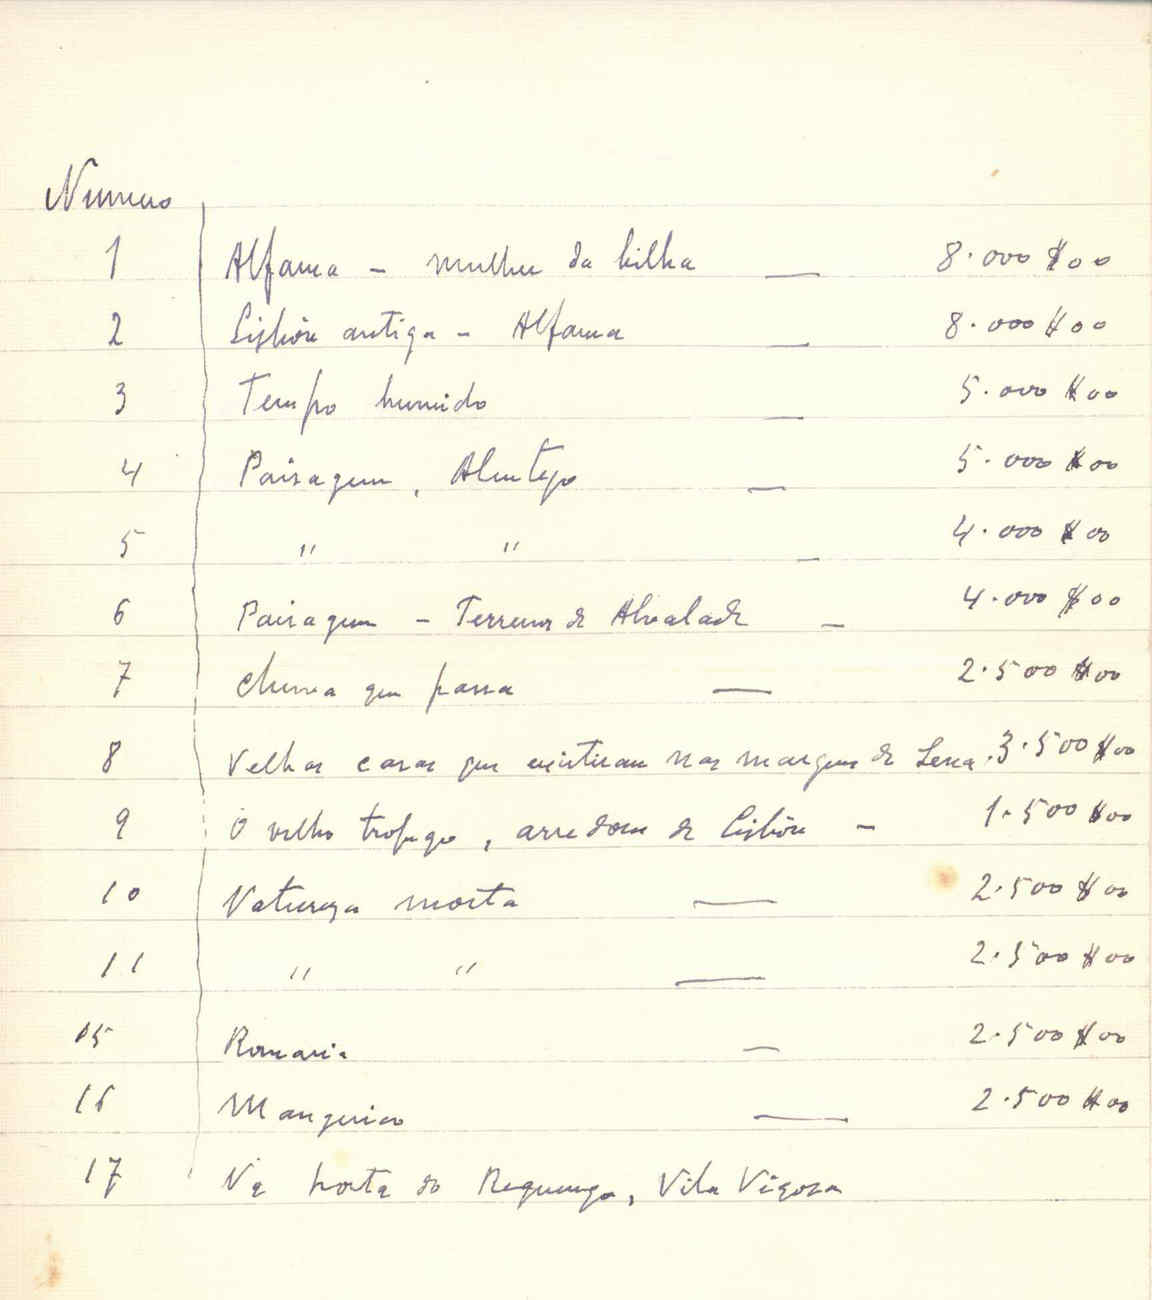 Numero
1 Alfama - mulher da bilha — 8.000$00
2 Lisbôa antiga - Alfama — 8.000$00
3 Tempo humido — 5.000$00
4 Paisagem, Alentejo — 5.000$00
5 " " — 4.000$00
6 Paisagem - Terrenos de Alvalade — 4.000$00
7 Chuva que passa — 2.500$00
8 Velhas casas que existiram nas margens do 3.500$00
9 O velho trôpego, arredores de Lisbôa - 1.500$00
10 Natureza morta — 2.500$00
11 " " — 2.500$00
15 Romaria — 2.500$00
16 Mangerico — 2.500$00
17 Na horta do Reguengo, Vila Viçosa